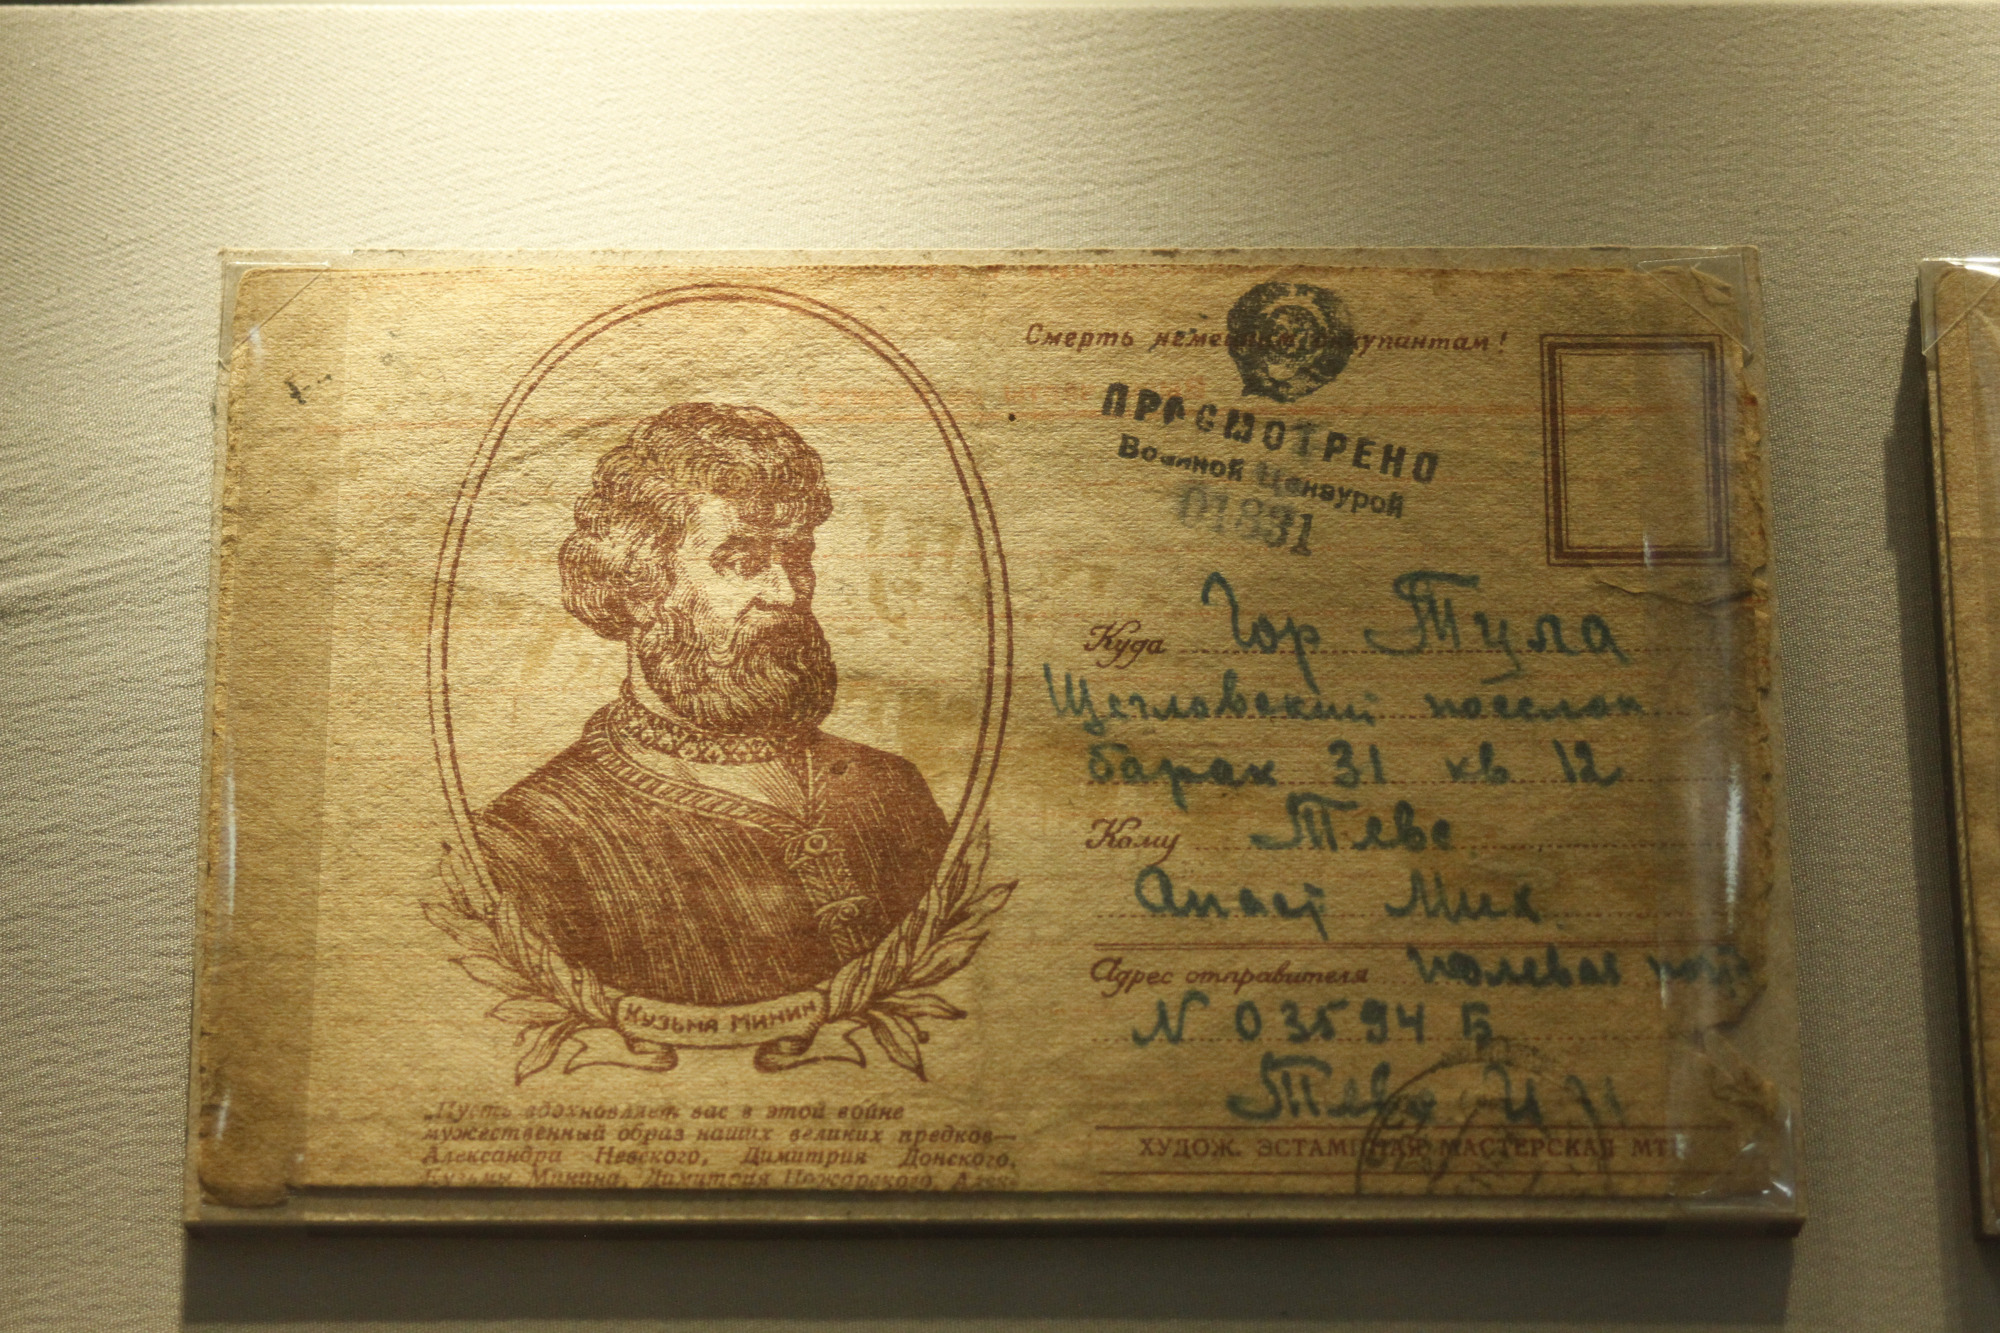 Смерть немецким оккупантам!
ПРОСМОТРЕНО
Военной Цензурой
01831
Куда Гор Тула
Щегловский поселок
барак 31 кв 12
Кому
Анаст Мих
Адрес отправителя полевая почт
N 03594 Б
КУЗЬМА МИНИН
„Пусть вдохновляет вас в этой войне
мужественный образ наших великих предков—
Александра Невского, Димитрия Донского,
Кузьмы Минина, Димитрия Пожарского, Алек-
ХУДОЖ. ЭСТАМПНАЯ МАСТЕРСКАЯ